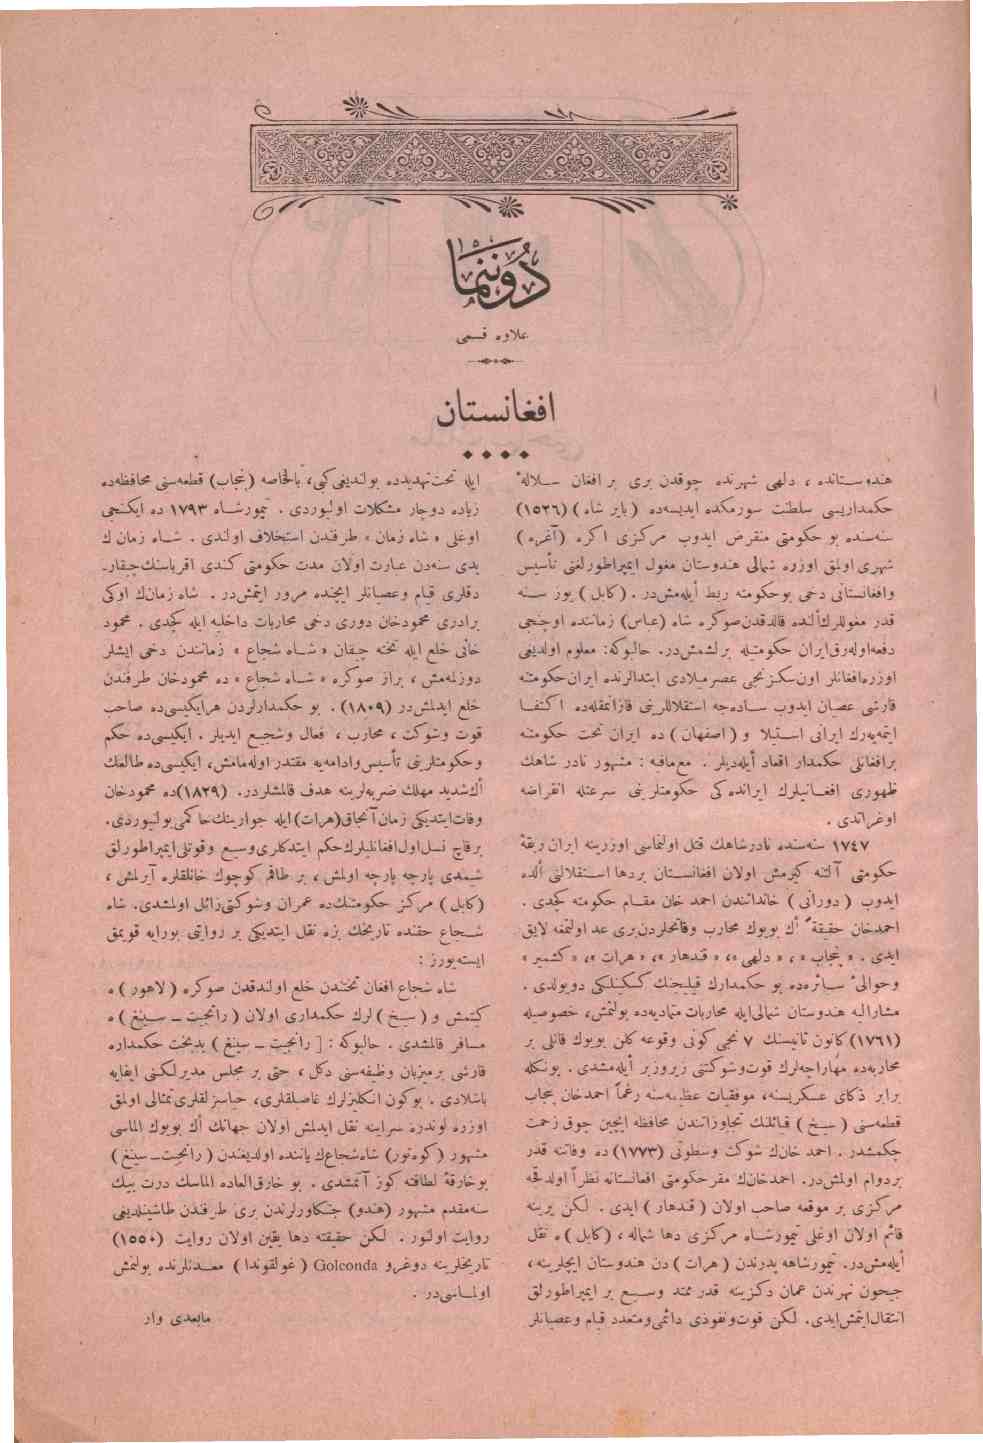 دوننما
علاوه قسمى
افغانستان
هندوستانده ، دلهى شهرنده چوقدن برى بر افغان سلالهٔ
حكمداريسى سلطنت سورمكده ايديسه‌ده (بابر شاه) (١٥٢٦)
سنه‌سنده بو حكومتى منقرض ايدوب مركزى اكره (آغره)
شهرى اولمق اوزره شمالى هندوستان مغول ايمپراطورلغنى تأسيس
وافغانستانى دخى بوحكومته ربط أيله‌مش‌در . (كابل) يوز سنه
قدر مغوللرك‌ألنده قالدقدن‌صوكره شاه (عباس) زماننده اوچنجى
دفعه‌اوله‌رق‌ايران حكومتيله برلشمش‌در. حالبوكه: معلوم اولديغى
اوزره‌افغانلر اون‌سكزنجى عصرميلادى ابتدالرنده ايران‌حكومتنه
قارشى عصيان ايدوب ساده‌جه استقلاللرينى قازانمقله‌ده اكتفا
ايتمه‌يه‌رك ايرانى استيلا و (اصفهان) ده ايران تحت حكومتنه
برافغانلى حكمدار اقعاد أيله‌ديلر . مع‌مافيه : مشهور نادر شاهك
ظهورى افغانيلرك ايرانده‌كى حكومتلرينى سرعتله انقراضه
اوغراتدى .
١٧٤٧ سنه‌سنده نادرشاهك قتل اولنماسى اوزرينه ايران ربقهٔ
حكومتى آلتنه كيرمش اولان افغانستان بردها استقلالنى ألده
ايدوب (دورانى) خانداننندن احمد خان مقام حكومته كچدى .
احمدخان حقيقةً أك بويوك محارب وفاتحلردن‌برى عد اولنمغه لايق
ايدى . « پنجاب » ، « دلهى »، « قندهار »، « هرات »، « كشمير »
وحوالىٔ سائره‌ده بو حكمدارك قيليجنك كسكينلكى دويولدى .
مشاراليه هندوستان شمالى‌ايله محاربات متماديه‌ده بولنمش، خصوصيله
(١٧٦١) كانون ثانيسنك ٧ نجى كونى وقوعه كلن بويوك قانلى بر
محاربه‌ده مهاراجه‌لرك قوت‌وشوكتنى زيروزبر أيله‌مشدى . بونكله
برابر ذكاى عسكريسنه، موفقيات عظيمه‌سنه رغماً احمدخان پنجاب
قطعه‌سنى (سيخ) قبائلنك تجاوزاتندن محافظه ايچين چوق زحمت
چكمشدر . احمد خان‌ك شوكت وسطوتى (١٧٧٣) ده وفاتنه قدر
بردوام اولمش‌در. احمدخان‌ك مقرحكومتى افغانستانه نظراً اولدقجه
مركزى بر موقعه صاحب اولان (قندهار) ايدى . لكن يرينه
قائم اولان اوغلى تيمورشاه مركزى دها شماله ، (كابل) ه نقل
أيله‌مش‌در. تيمورشاهه پدرندن (هرات) دن هندوستان ايچلرينه ،
جيحون نهرندن عمان دكزينه قدر ممتد وسيع بر ايمپراطورلق
انتقال‌ايتمش‌ايدى. لكن قوت‌ونفوذى دائمى‌ومتعدد قيام وعصيانلر
ايله تحت‌تهديدده بولنديغى‌كبى ، بالخاصه (پنجاب) قطعه‌سنى محافظه‌ده
زياده دوچار مشكلات اوليوردى . تيمورشاه ١٧٩٣ ده ايكنجى
اوغلى « شاه زمان » طرفندن استخلاف اولندى . شاه زمان ك
يدى سنه‌دن عبارت اولان مدت حكومتى كندى اقرباسنك‌چيقار-
دقلرى قيام وعصيانلر ايچنده مرور ايتمش‌در . شاه زمان‌ك اوكى
برادرى محمودخان دورى دخى محاربات داخليه ايله كچدى . محمود
خانى خلع ايله تخته چيقان « شاه شجاع » زمانندن دخى ايشلر
دوزلمه‌مش ، براز صوكره « شاه شجاع » ده محمودخان طرفندن
خلع ايدلمش‌در (١٨٠٩) . بو حكمدارلردن هرايكيسى‌ده صاحب
قوت وشوكت ، محارب ، فعال وشجيع ايديلر . ايكيسى‌ده حكم
وحكومتلرينى تأسيس‌وادامه‌يه مقتدر اوله‌مامش، ايكيسى‌ده طالعك
أك‌شديد مهلك ضربه‌لرينه هدف قالمشلردر. (١٨٢٩)ده محمودخان
وفات‌ايتديكى زمان‌آنجاق(هرات)ايله جوارينك‌حاكمى بولنيوردى.
برقاچ نسل‌اول‌افغانليلرك‌حكم ايتدكلرى‌وسيع وقوتلى‌ايمپراطورلق
شيمدى پارچه پارچه اولمش ، بر طاقم كوچوك خانلقلره آيرلمش ،
(كابل) مركز حكومتنك‌ده عمران وشوكتى‌زائل اولمشدى. شاه
شجاع حقنده تاريخك بزه نقل ايتديكى بر روايتى بورايه قويمق
ايسته‌يورز :
شاه شجاع افغان تختندن خلع اولندقدن صوكره (لاهور) ه
كيتمش و (سيخ) لرك حكمدارى اولان (رانجيت ـ سينغ) ه
مسافر قالمشدى . حالبوكه : [رانجيت ـ سينغ) بدبخت حكمداره
قارشى برميزبان وظيفه‌سنى دكل ، حتى بر مجلس مديرلكنى ايفايه
باشلادى . بوكون انكليزلرك غاصبلقلرى، حياسزلقلرى‌تمثالى اولمق
اوزره لوندره سراينه نقل ايدلمش اولان جهانك أك بويوك الماسى
مشهور (كوه‌نور) شاه‌شجاع‌ك ياننده اولديغندن (رانجيت‌ـ سينغ)
بوخارقهٔ لطافته كوز آتمشدى . بو خارق‌العاده الماسك درت بيك
سنه‌مقدم مشهور (هندو) جنكاورلرندن برى طرفندن طاشينلديغى
روايت اولنور . لكن حقيقته دها يقين اولان روايت (١٥٥٠)
تاريخلرينه دوغرو Golconda (غولقوندا) معدنلرنده بولنمش
اولماسى‌در .
مابعدى وار